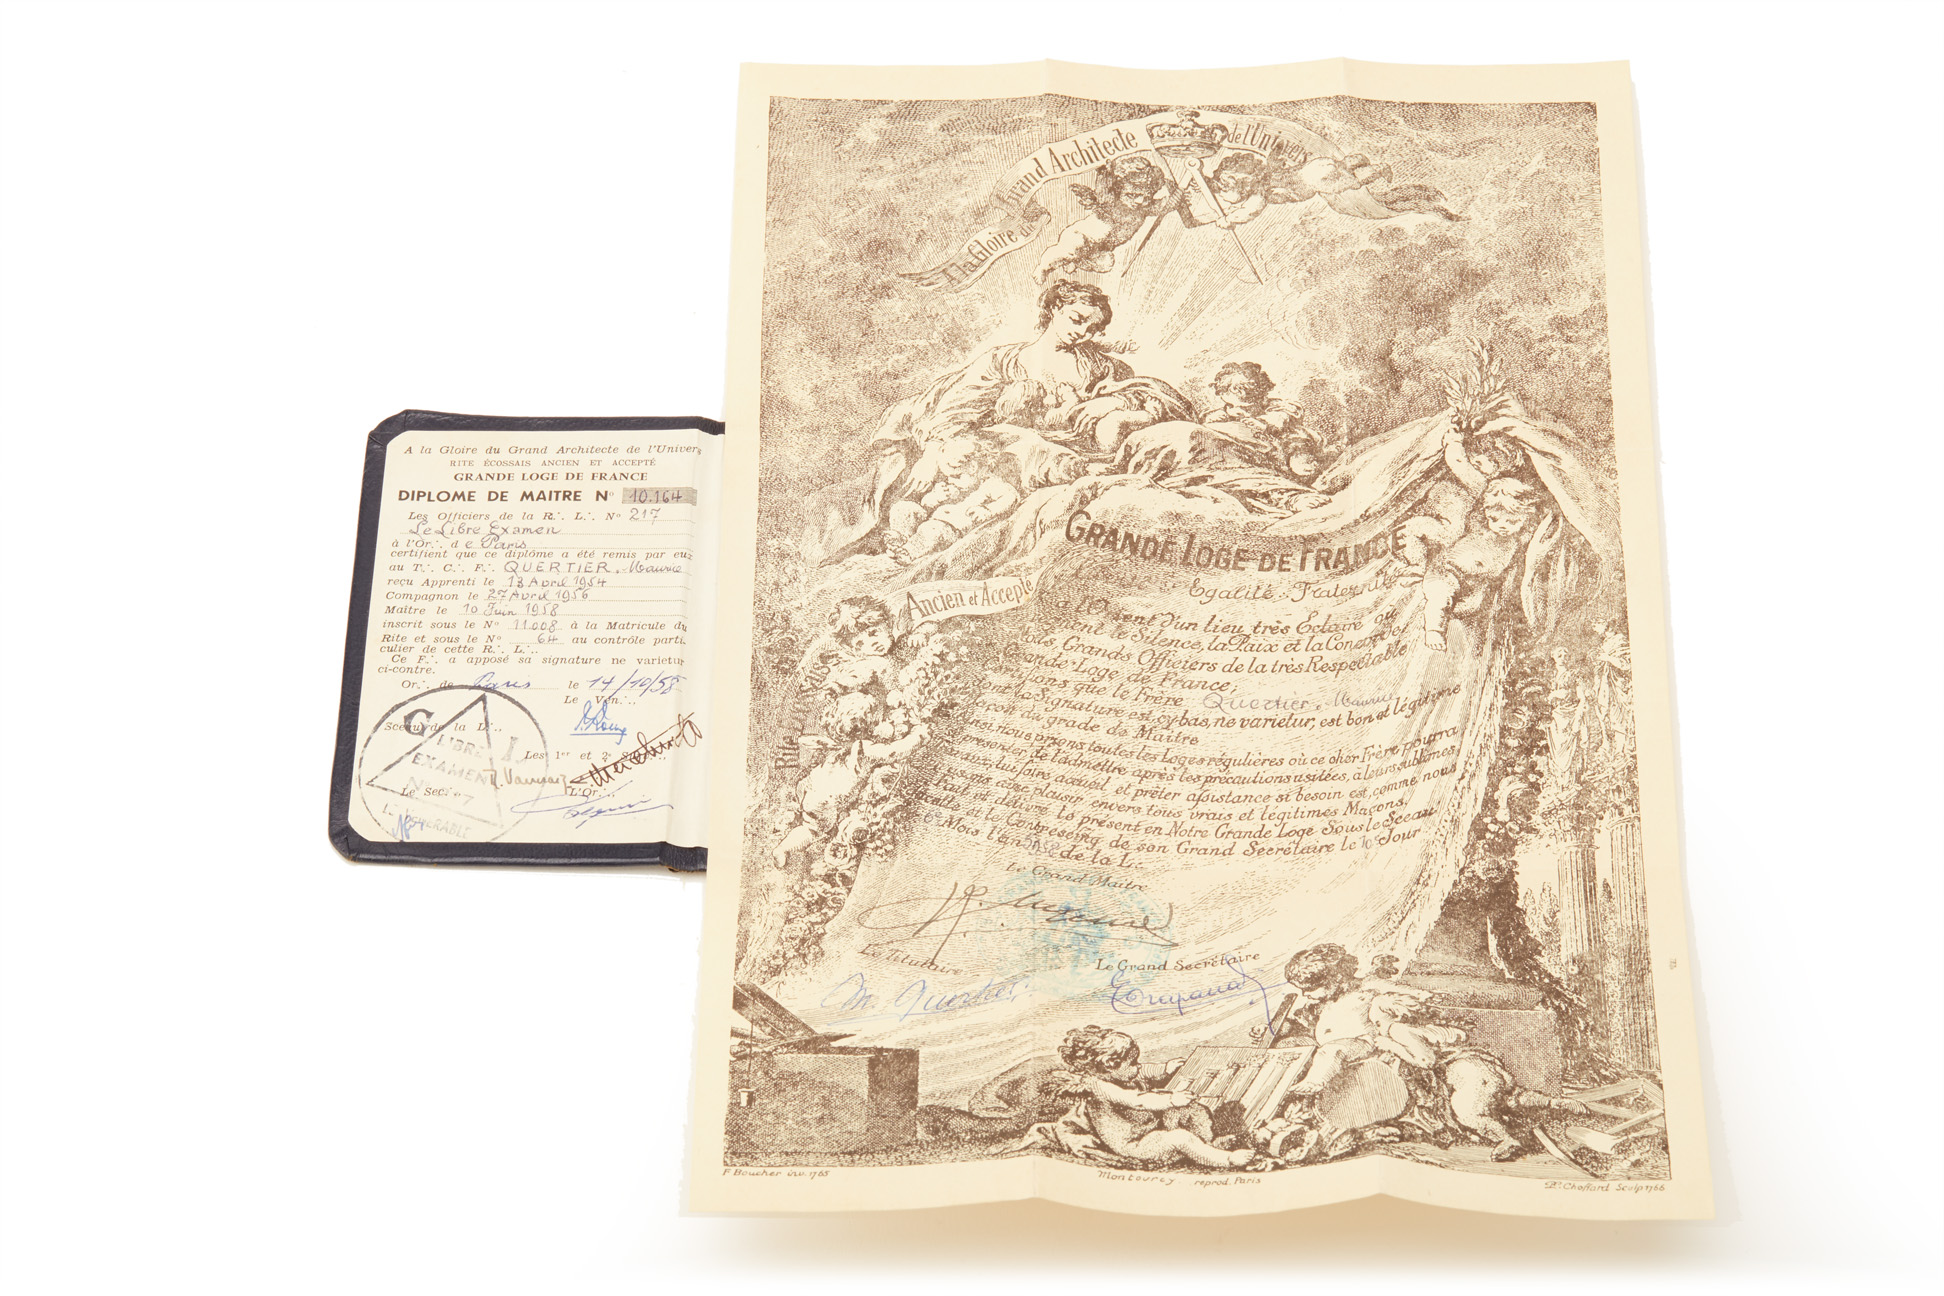 A la Gloire du Grand Architecte de l'Univers
RITE ÉCOSSAIS ANCIEN ET ACCEPTÉ
GRANDE LOGE DE FRANCE
DIPLOME DE MAITRE N° 10.164
Les Officiers de la R∴ L∴ N° 217
Le Libre Examen
à l'Or∴ de Paris
certifient que ce diplôme a été remis par eux
au T∴ C∴ F∴ QUERTIER. Maurice
reçu Apprenti le 13 Avril 1954
Compagnon le 27 Avril 1956
Maître le 10 Juin 1958
inscrit sous le N° 11.008 à la Matricule du
Rite et sous le N° 64 au contrôle parti-
culier de cette R∴ L∴.
Ce F∴ a apposé sa signature ne varietur
ci-contre.
Or∴ de Paris le 14/10/58
Le Vén∴
Sceau de la L∴
Les 1er et 2e
Le Secr
L'Or∴
G L
LIBRE
EXAMEN
LE VÉNÉRABLE
A la Gloire du Grand Architecte de l'Univers
GRANDE LOGE DE FRANCE
Egalité Fraternité
Rite
Ancien et Accepté
d'un lieu très Eclairé où
le Silence, la Paix et la Concorde,
Grands Officiers de la très Respectable
Grande Loge de France;
que le Frère Quertier Maurice
dont la Signature est cy bas, ne varietur, est bon et légitime
Maçon du grade de Maitre
nous prions toutes les Loges régulières où ce cher Frère pourra
se presenter de l'admettre après les précautions usitées, à leurs sublimes
lui faire accueil et prêter assistance si besoin est, comme nous
faisons avec plaisir envers tous vrais et légitimes Maçons.
Fait et délivré le présent en Notre Grande Loge Sous le Sceau
et le Contreseing de son Grand Secrétaire le 10 Jour
6e Mois l'an 5958 de la L∴
Le Grand Maitre
Le Titulaire
Le Grand Secrétaire
M. Quertier
F Boucher inv. 1765
Montourcy reprod. Paris
P. Choffard Sculp 1766